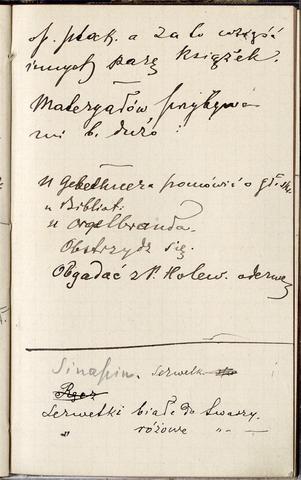 of. ptak. a za to wziąść
innych parę książek.
Materyałów przybywa
mi b. dużo
U Gebethnera pomówić o
u Bibliot:
u Orgelbranda.
Obstrzydz się.
Obgadać z P. Holew.
Sinapin. Serwetk.
Serwetki białe do twarzy.
„ różowe „ —„—